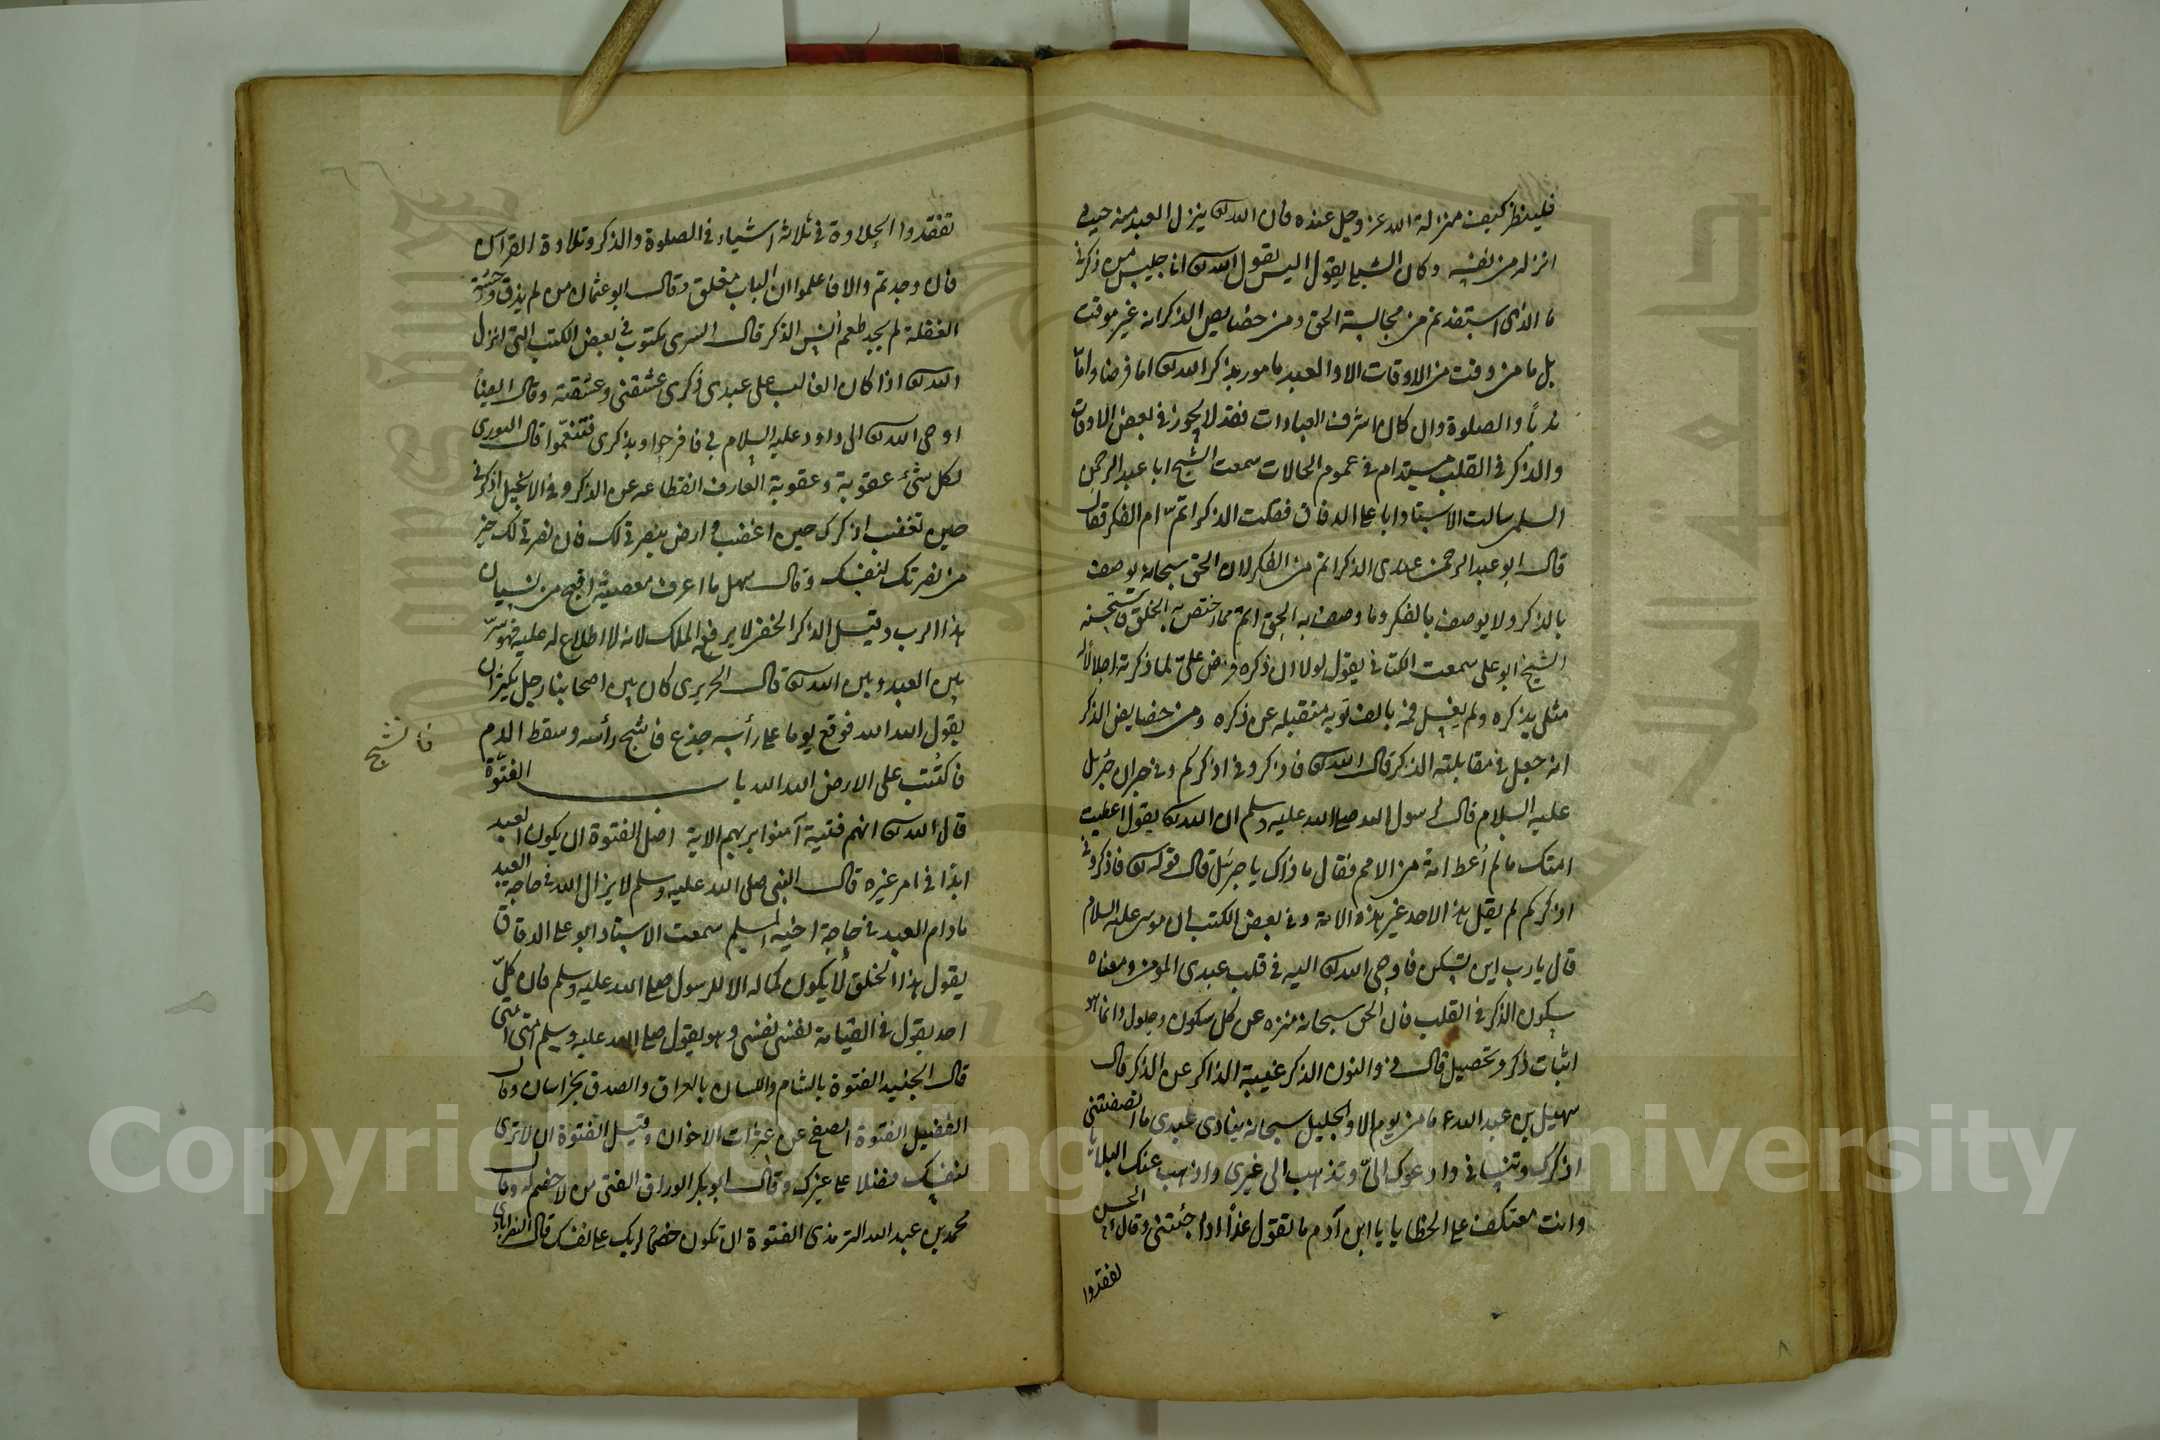 فلينظر كيف منزلة الله عز وجل عنده فان الله تع ينزل العبد منه حيث
انزله من نفسه وكان الشبلي يقول اليس يقول الله تع انا جليس من ذكرني
ما الذي استفدتم من مجالسة الحق ومن خصايص الذكر انه غير موقت
بل ما من وقت من الاوقات الا والعبد مامور بذكر الله تع اما فرضا واما
ندبا والصلوة وان كان اشرف العبادات فقد لا يجوز في بعض الاوقات
والذكر في القلب مستدام في عموم الحالات سمعت الشيخ ابا عبد الرحمن
السلمي سالت الاستاد ابا على الدقاق فقلت الذكر اتم ام الفكر فقال
قال ابو عبد الرحمن عندى الذكر اتم من الفكر لان الحق سبحانه يوصف
بالذكر ولا يوصف بالفكر وما وصف به الحق اتم مما اختص به الخلق فاستحسنه
الشيخ ابو على سمعت الكتاني يقول لولا ان ذكره فرض على لما ذكرته اجلالا له
مثلي يذكره ولم يغسل فمه بالف توبة متقبلة عن ذكره ومن خصايص الذكر
انه جعل في مقابلته الذكر قال الله تع فاذكروني اذكركم وفي خبر ان جبرئل
عليه السلام قال لرسول الله صلى الله عليه وسلم ان الله تع يقول اعطيت
امتك ما لم أعط امة من الامم فقال ما ذاك يا جبرئل قال قوله تع فاذكروني
اذكركم لم يقل هذا لاحد غير هذه الامة وفي بعض الكتب ان موسى عليه السلام
قال يا رب اين تسكن فاوحى الله تع اليه في قلب عبدى المومن ومعناه
سكون الذكر في القلب فان الحق سبحانه منزه عن كل سكون وحلول وانما هو
اثبات ذكر وتحصيل قال ذو النون الذكر غيبة الذاكر عن الذكر قال
سهل بن عبد الله ما من يوم الا والجليل سبحانه ينادى عبدى ما انصفتني
اذكرك وتنساني وادعوك الىّ وتذهب الى غيرى واذهب عنك البلايا
وانت معتكف على الخطايا يا ابن آدم ما تقول غدا اذا جئتني وقال الحسن
تفقدوا
تفقدوا الحلاوة في ثلاثة اشياء في الصلوة والذكر وتلاوة القرآن
فان وجدتم والا فاعلموا ان الباب مغلق وقال ابو عثمان من لم يذق وحشة
الغفلة لم يجد طعم أنس الذكر قال السرى مكتوب في بعض الكتب التى انزل
الله تع اذا كان الغالب على عبدى ذكرى عشقنى وعشقته وقال ايضا
اوحى الله تع الى داود عليه السلام بي فافرحوا وبذكرى فتنعموا قال النورى
لكل شئ عقوبة وعقوبة العارف انقطاعه عن الذكر وفي الانجيل اذكرني
حين تغضب اذكرك حين اغضب وارض بنصرتي لك فان نصرتي لك خير
من نصرتك لنفسك وقال سهل ما اعرف معصية اقبح من نسيان
هذا الرب وقيل الذكر الخفى لا يرفعه الملك لانه لا اطلاع له عليه فهو سر
بين العبد وبين الله تع قال الجريرى كان بين اصحابنا رجل يكثر ان
يقول الله الله فوقع يوما على رأسه جذع فانشج رأسه وسقط الدم
فانشج
فاكتتب على الارض الله الله باب الفتوة
قال الله تع انهم فتية آمنوا بربهم الاية اصل الفتوة ان يكون العبد
ابدا في امر غيره قال النبى صلى الله عليه وسلم لا يزال الله في حاجة العبد
مادام العبد في حاجة اخيه المسلم سمعت الاستاد ابو على الدقاق
يقول هذا الخلق لا يكون كماله الا للرسول صلى الله عليه وسلم فان كل
احد يقول في القيامة نفسى نفسى وهو يقول صلى الله عليه وسلم امتى امتى
قال الجنيد الفتوة بالشام واللسان بالعراق والصدق بخراسان وقال
الفضيل الفتوة الصفح عن عثرات الاخوان وقيل الفتوة ان لا ترى
لنفسك فضلا على غيرك وقال ابو بكر الوراق الفتى من لا خصم له وقال
محمد بن عبد الله الترمذى الفتوة ان تكون خصما لربك على نفسك قال النصراباذى
Copyright © King Saud University
جامعة الملك سعود
King Saud University
1957